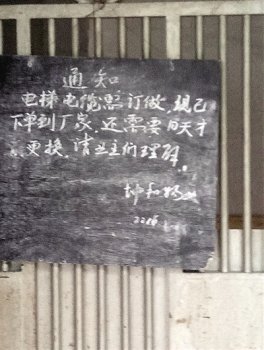 通知
电梯电缆需订做,现已
下单到厂家,还需要 天才
更换,请业主们理解。
坤和物业
2016